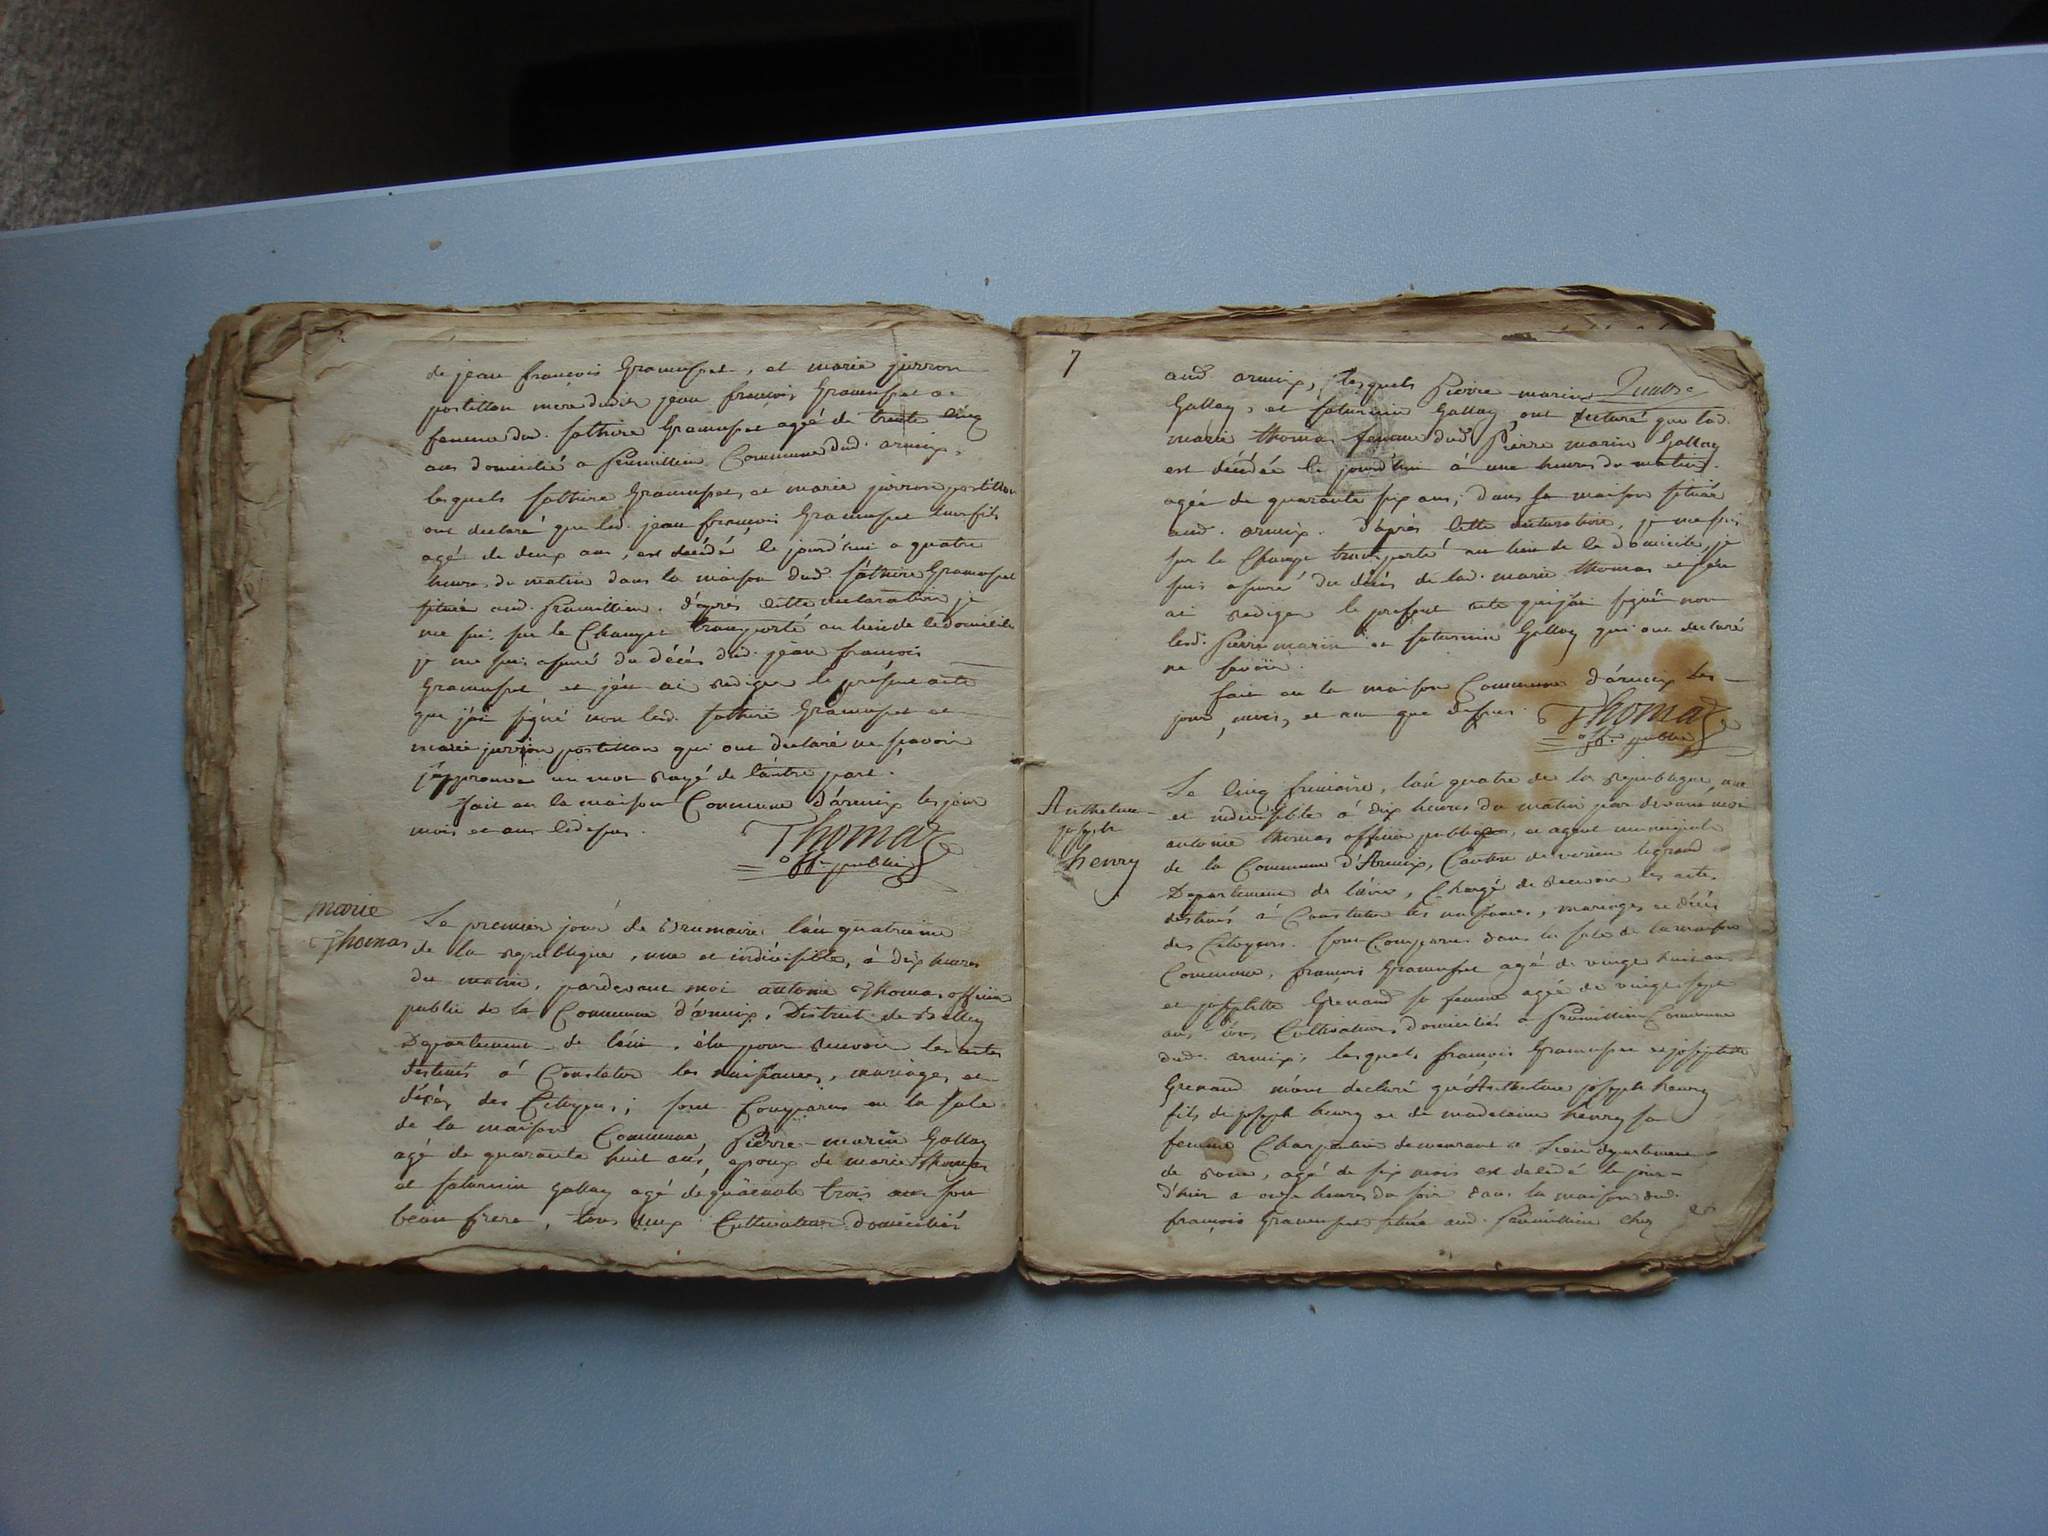 de jean francois Gramusset, et marie jurron
postillon mere dudit jean francois Gramusset
femme dud. sathire Gramusset agé de trente cinq
ans domicilié a Premillieu Commune dud. armix,
lesquels sathire Gramusset, et marie jurron postillon
ont declaré que led. jean françois Gramusset leur fils
agé de deux ans, est décédé le jourd'hui a quatre
heures du matin dans la maison dud. sathire Gramusset
située aud. Premillieu. d'après cette declaration je
me suis sur le Champs transporté au lieu de le domicile
je me suis assuré du décès dud. jean francois
Gramusset et j'en ai rediger le présent acte
que j'ai signé non led. sathire Gramusset et
marie jurron postillon qui ont déclaré ne sçavoir
j'approuve un mot rayé de l'autre part.
fait en la maison Commune d'armix les jour
mois et ans ledessus.
Thomas
off. public
marie
Thomas
Le premier jour de Brumaire l'an quatrieme
de la republique, une et indivisible, à dix heures
du matin, pardevant moi antoine Thomas officier
public de la Commune d'armix, District de Belley
Departement de l'ain, élu pour recevoir les actes
destinés à Constater les naissances, mariages et
décès des Citoyens; sont Comparus en la sale
de la maison Commune, Pierre-marin Gallay
agé de quarante huit ans, epoux de marie thomas
et saturnin Gallay agé de quarante trois ans son
beau frere, tous deux Cultivateurs domiciliés
7
aud. armix, lesquels Pierre marin
Gallay, et saturnin Gallay, ont declaré que lad.
marie thomas femme dud. Pierre marin Gallay
est décédée le jourd'hui à une heures du matin.
agée de quarante six ans; dans sa maison située
aud. armix. d'après cette declaration, je me suis
sur le Champs transporté au lieu de le domicile, je
suis assuré du décès de lad. marie thomas et j'en
ai rediger le present acte que j'ai signé non
lesd. Pierre marin et saturnin Gallay qui ont declaré
ne savoir.
fait en la maison Commune d'armix les
jour, mois, et an que dessus.
Thomas
off. public
Anthelme
joseph
henry
Le cinq frimaire, l'an quatre de la republique, une
et indivisible à dix heures du matin par devant moi
antoine thomas officier public, et agent municipale
de la Commune d'Armix, Canton de virieu legrand
Departement de l'ain, Chargé de recevoir les actes
destinés à Constater les naissances, mariages et décès
des Citoyens. sont Comparus dans la sale de la maison
Commune, francois Gramusset agé de vingt huit ans
et josephtte Grenaud sa femme agée de vingt sept
ans, tous Cultivateurs domiciliés a Premillieu Commune
dud. armix; lesquels françois Gramusset et josephtte
Grenaud m'ont declaré qu'Anthelme joseph henry
fils de joseph henry et de madeleine henry sa
femme Charpentier demeurant a Lion departement
de rone, agé de six mois est decedé le jour
d'hier a onze heures du soir dans la maison dud.
françois Gramusset située aud. Premillieu chez